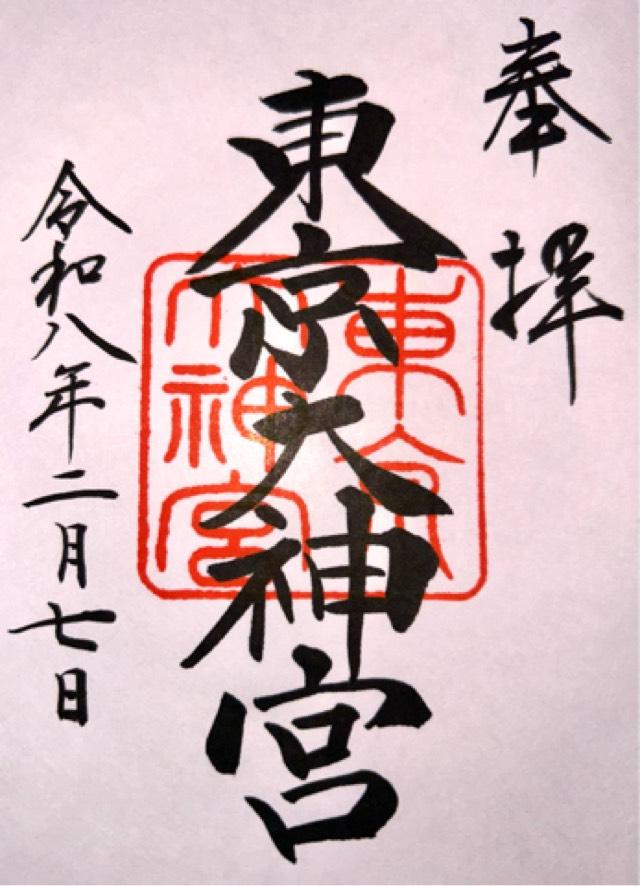 奉拝
東京大神宮
東京大神宮
令和八年二月七日